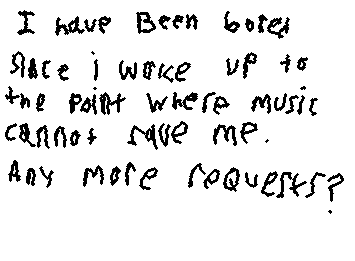 I have Been bored
since i woke up to
the point where music
cannot save me.
Any more requests?